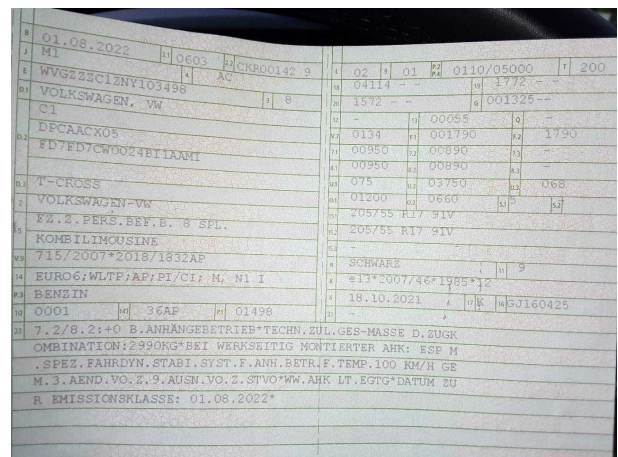 B 01.08.2022 2.1 0603 2.2 CKR00142 9
J M1 4 AC
E WVGZZZC1ZNY103498 3 8
D.1 VOLKSWAGEN, VW
C1
D.2 DPCAACX05
FD7FD7CW0024BI1AAMI
D.3 T-CROSS
2 VOLKSWAGEN-VW
5 FZ.Z.PERS.BEF.B. 8 SPL.
KOMBILIMOUSINE
V.9 715/2007*2018/1832AP
14 EURO6;WLTP;AP;PI/CI; M, N1 I
P.3 BENZIN
10 0001 14.1 36AP P.1 01498
L 02 9 01 P.2 P.4 0110/05000 T 200
18 04114 - - 19 1772 - -
20 1572 - - G 001325--
12 - 13 00055 Q -
V.7 0134 F.1 001790 F.2 1790
7.1 00950 7.2 00890 7.3 -
8.1 00950 8.2 00890 8.3 -
U.1 075 U.2 03750 U.3 068
O.1 01200 O.2 0660 S.1 5 S.2
15.1 205/55 R17 91V
15.2 205/55 R17 91V
15.3 -
R SCHWARZ 11 9
K e13*2007/46*1985*12
6 18.10.2021 17 K 16 GJ160425
21 -
22 7.2/8.2:+0 B.ANHÄNGEBETRIEB*TECHN.ZUL.GES-MASSE D.ZUGK
OMBINATION:2990KG*BEI WERKSEITIG MONTIERTER AHK: ESP M
.SPEZ.FAHRDYN.STABI.SYST.F.ANH.BETR.F.TEMP.100 KM/H GE
M.3.AEND.VO.Z.9.AUSN.VO.Z.STVO*WW.AHK LT.EGTG*DATUM ZU
R EMISSIONSKLASSE: 01.08.2022*